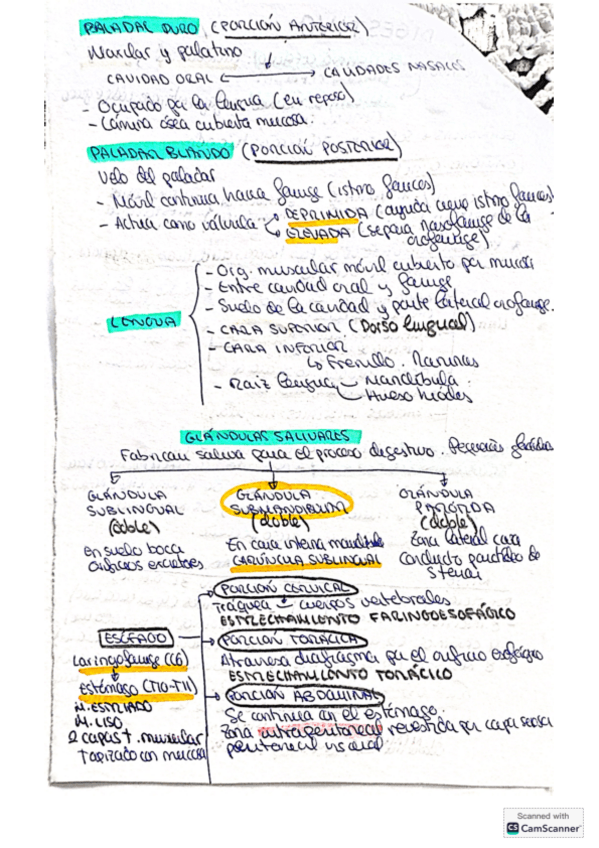 PALADAR DURO (PORCIÓN ANTERIOR)
Maxilar y palatino
CAVIDAD ORAL ↔ CAVIDADES NASALES
- Ocupado por la lengua (en reposo)
- Lámina ósea cubierta mucosa.
PALADAR BLANDO (PORCIÓN POSTERIOR)
Velo del paladar
- Móvil continua hacia faringe (istmo fauces)
- Actúa como válvula → DEPRIMIDA (ayuda cierre istmo fauces)
↳ ELEVADA (separa nasofaringe de la
orofaringe)
LENGUA
- Org. muscular móvil cubierto por mucosa
- Entre cavidad oral y faringe
- Suelo de la cavidad y parte lateral orofaringe.
- CARA SUPERIOR (Dorso lingual)
- CARA INFERIOR
↳ Frenillo.
- Raiz lengua - Mandíbula
Hueso hioides
GLÁNDULAS SALIVARES
Fabrican saliva para el proceso digestivo. Pequeñas glándulas
GLÁNDULA
SUBLINGUAL
(doble)
En suelo boca
orificios excretores
GLÁNDULA
SUBMANDIBULAR
(doble)
En cara interna mandíbula
CARÚNCULA SUBLINGUAL
GLÁNDULA
PARÓTIDA
(doble)
Zona lateral cara
Conducto parotídeo de
Stenon
ESÓFAGO
Laringofaringe (C6)
↓
estómago (T10-T11)
M. ESTRIADO
M. LISO
2 capas t. muscular
Tapizado con mucosa
PORCIÓN CERVICAL
Tráquea - cuerpos vertebrales
ESTRECHAMIENTO FARINGOESOFÁGICO
PORCIÓN TORÁCICA
Atraviesa diafragma por el orificio esofágico
ESTRECHAMIENTO TORÁCICO
PORCIÓN ABDOMINAL
Se continua con el estómago.
Zona intraperitoneal revestida por capa serosa
peritoneal visceral
Scanned with
CS CamScanner